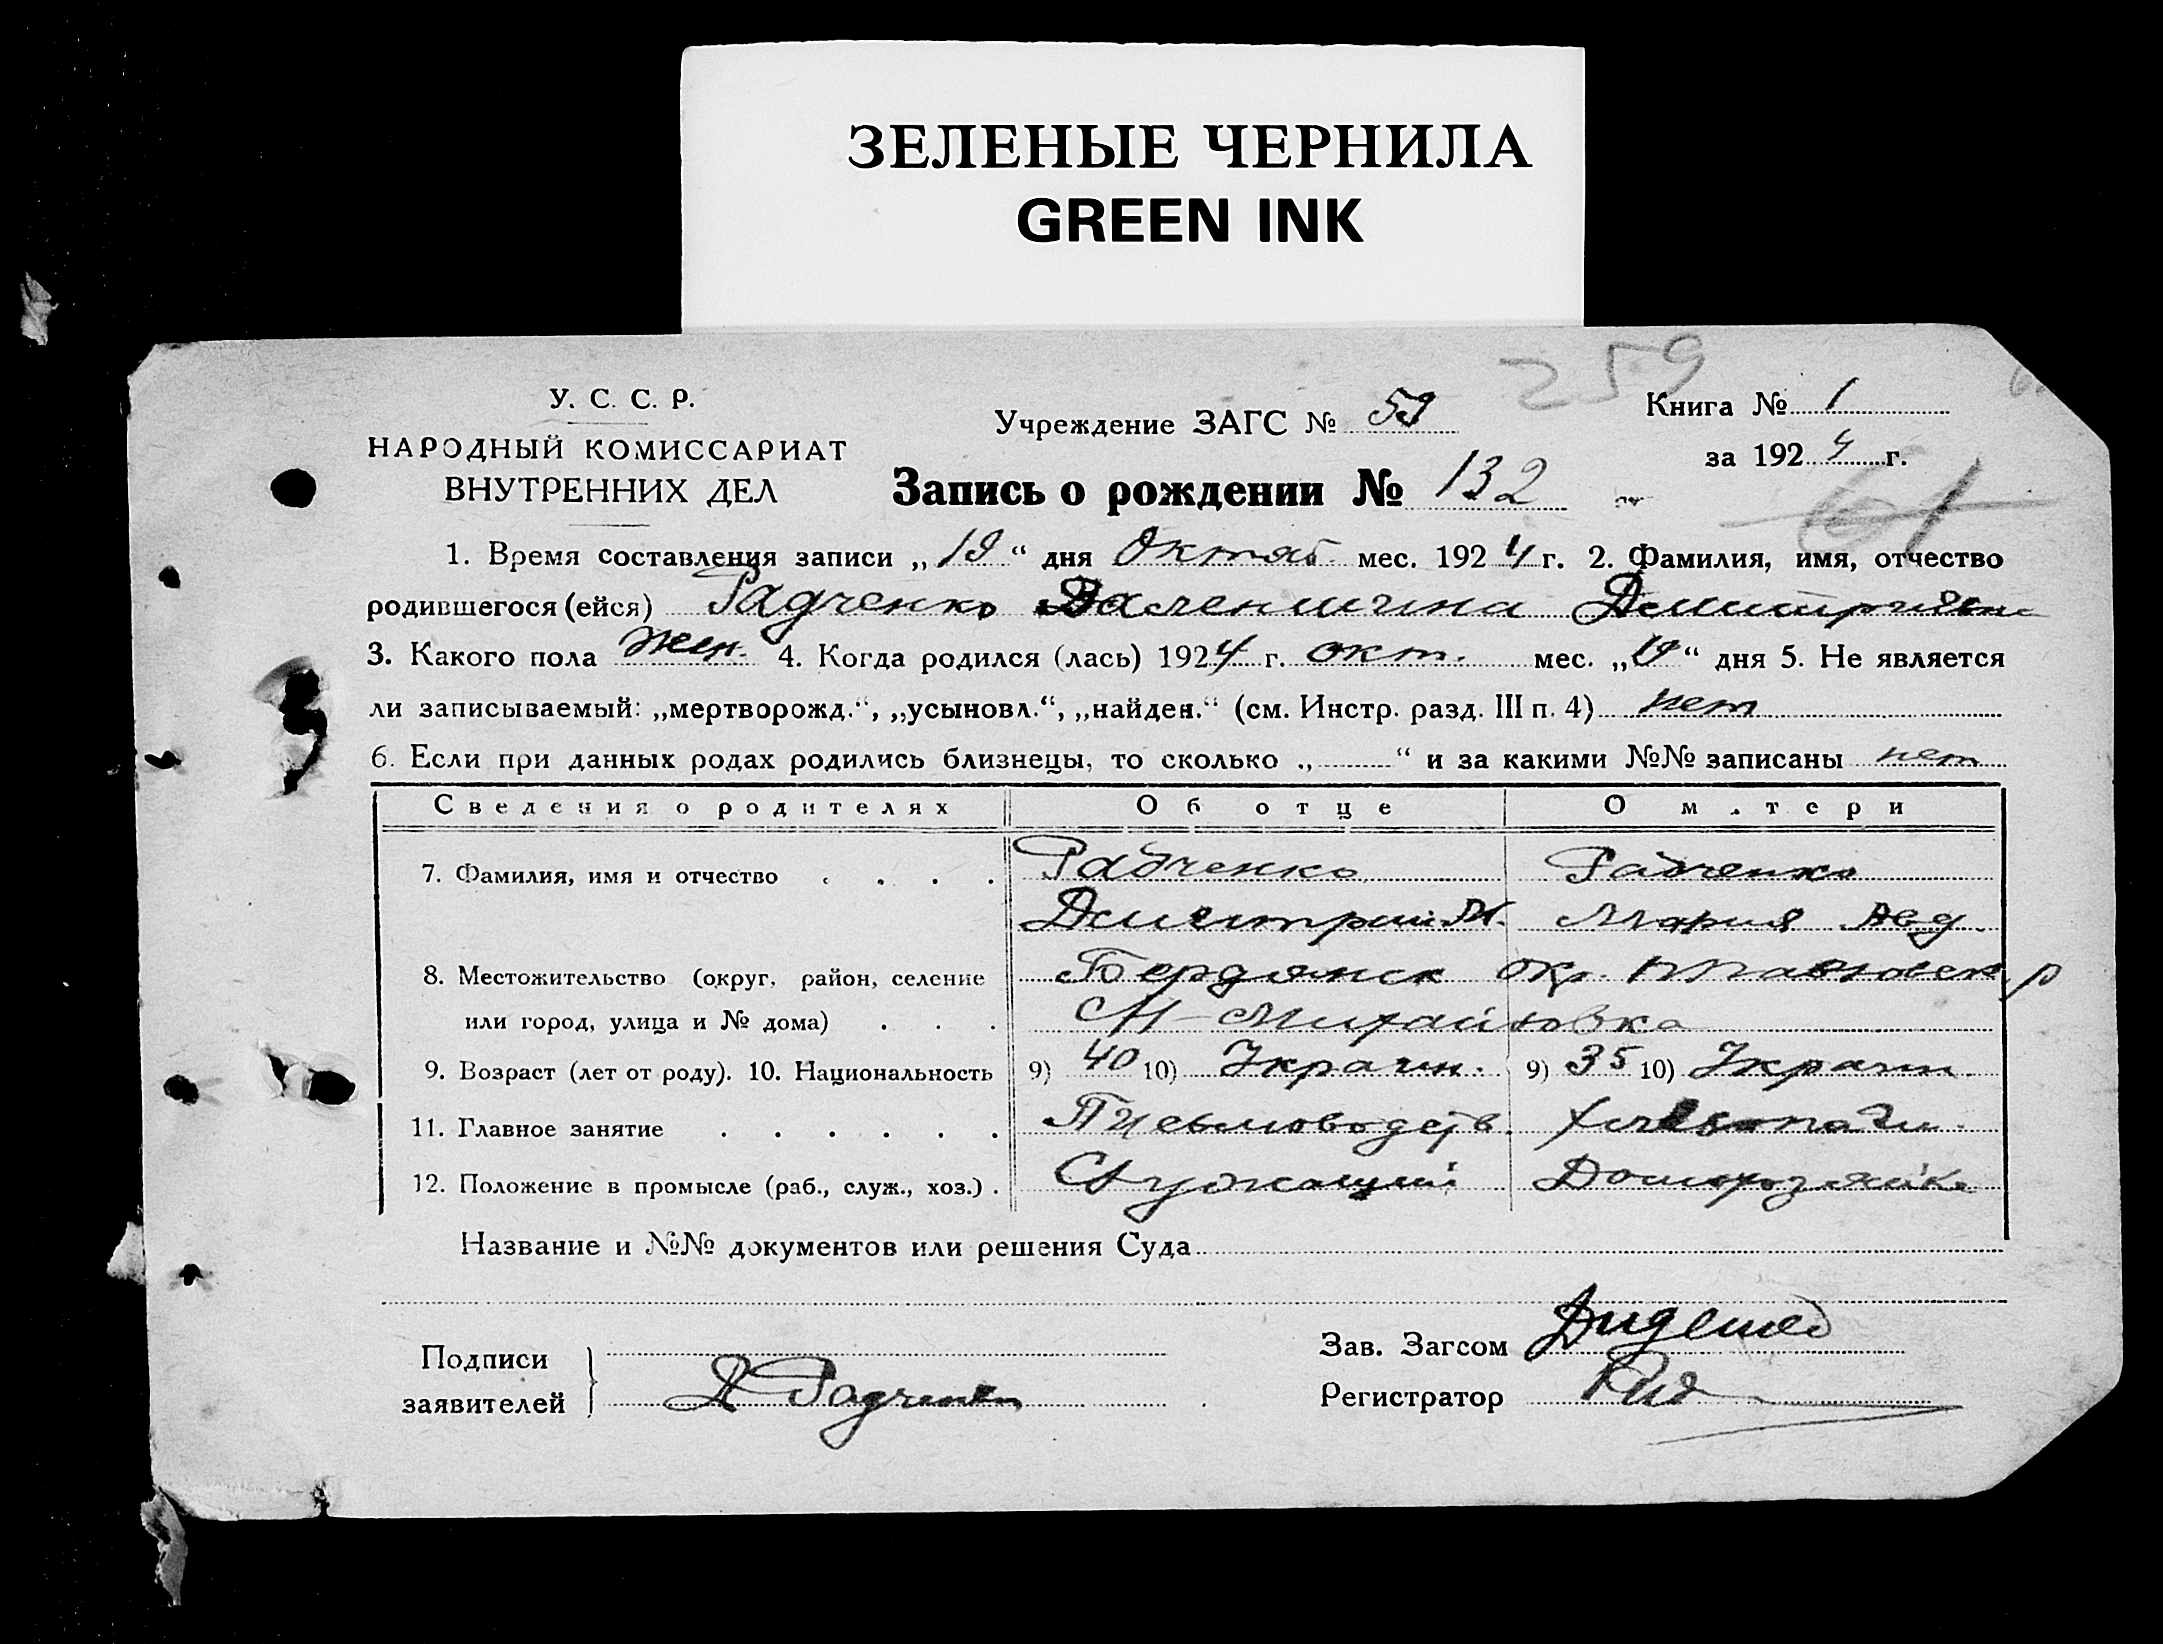 ЗЕЛЕНЫЕ ЧЕРНИЛА
GREEN INK
259
У. С. С. Р.
НАРОДНЫЙ КОМИССАРИАТ
ВНУТРЕННИХ ДЕЛ
Учреждение ЗАГС № 59
Книга № 1
за 1924 г.
Запись о рождении № 132
1. Время составления записи „19“ дня Октяб. мес. 1924 г. 2. Фамилия, имя, отчество
родившегося (ейся) Радченко Валентина Дмитриевна
3. Какого пола жен. 4. Когда родился (лась) 1924 г. окт. мес. „“ дня 5. Не является
ли записываемый: „мертворожд.“, „усыновл.“, „найден.“ (см. Инстр. разд. III п. 4) нет
6. Если при данных родах родились близнецы, то сколько „ “ и за какими №№ записаны нет
Сведения о родителях Об отце О м.тери
7. Фамилия, имя и отчество . . . . Радченко Радченко
Димитрий М. Мария Авд.
8. Местожительство (округ, район, селение Бердянск окр. р
или город, улица и № дома) . . . Н-Михайловка
9. Возраст (лет от роду). 10. Национальность 9) 40 10) Украин. 9) 35 10) Украин.
11. Главное занятие . . . . . . Письмоводств.
12. Положение в промысле (раб., служ., хоз.) . Служащий Домохозяйка
Название и №№ документов или решения Суда
Подписи
заявителей
Д Радченко
Зав. Загсом
Регистратор